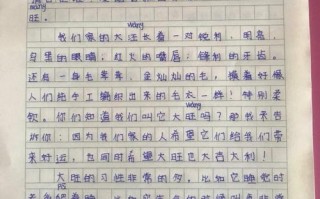 wàng
旺。
wàng
我们家的大旺长着一对锐利、明亮、
乌黑的眼睛，红火的嘴唇，锋利的牙齿。
还有一身毛茸茸、金灿灿的毛，摸着好像
人们给手工编织出来的毛衣一样！特别柔
wàng
软。你们知道我们叫它大旺吗？那我来告
诉你：因为我们家的人希望它们给我们带
来好运，也同时希望大旺也大吉大利！
大旺的习性非常的多，比如它睡觉的